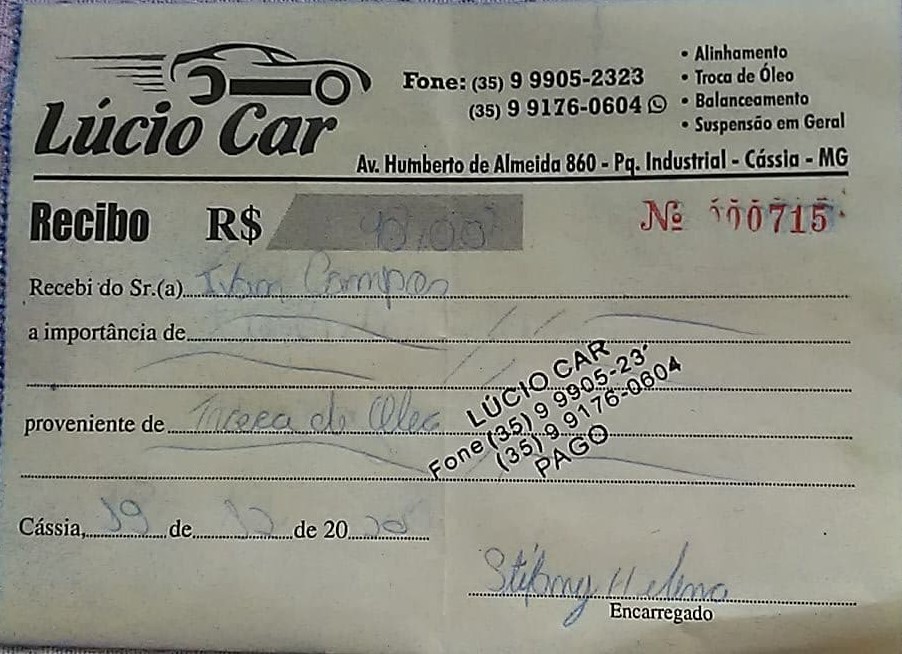 Lúcio Car
Fone: (35) 9 9905-2323
(35) 9 9176-0604
• Alinhamento
• Troca de Óleo
• Balanceamento
• Suspensão em Geral
Av. Humberto de Almeida 860 - Pq. Industrial - Cássia - MG
Recibo R$ 90,00 Nº 000715
Recebi do Sr.(a) Ivan Campos
a importância de
proveniente de Troca de Oleo
LÚCIO CAR
Fone (35) 9 9905-23
(35) 9 9176-0604
PAGO
Cássia, 19 de 12 de 20 20
Stefany Helena
Encarregado